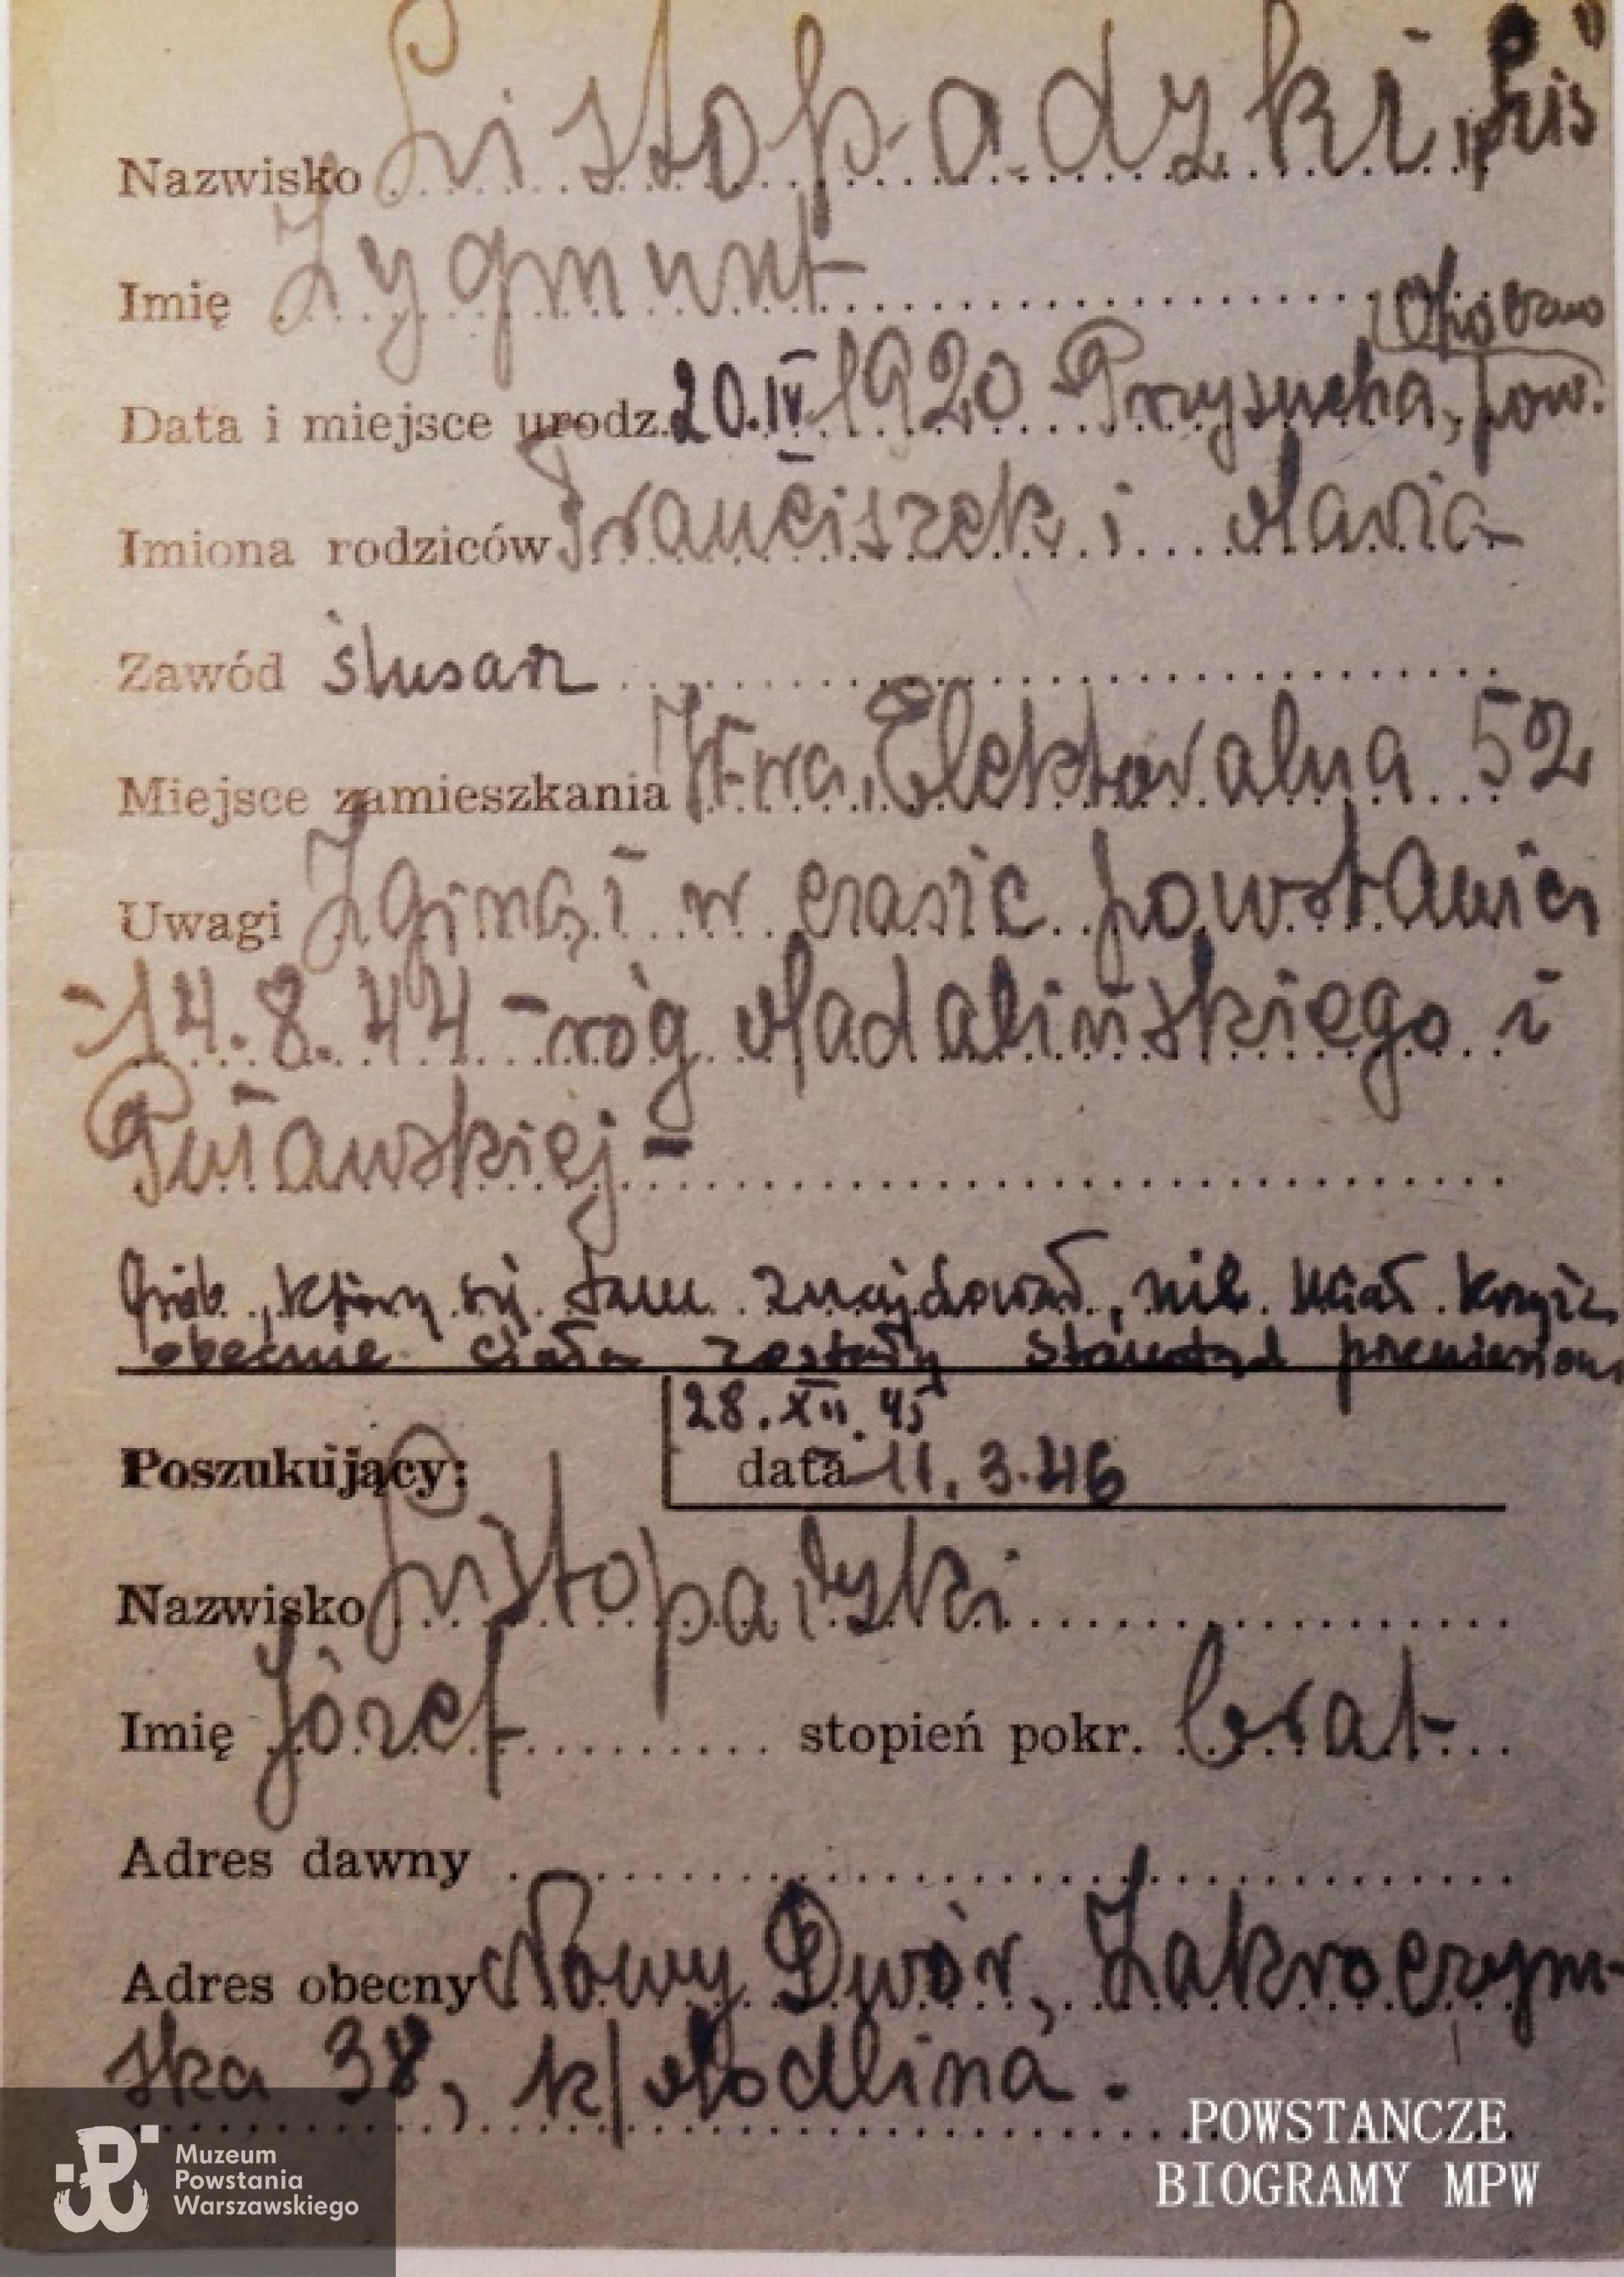 Nazwisko Listopadzki „Lis"
Imię Zygmunt
Opoczno
Data i miejsce urodz. 20.IV 1920 Przysucha, pow.
Imiona rodziców Franciszek i Maria
Zawód ślusarz
Miejsce zamieszkania W-wa, Elektoralna 52
Uwagi Zginął w czasie powstania
-14.8.44 - róg Madalińskiego i
Puławskiej -
Grób, który się tam znajdował, nie miał krzyża
obecnie ciała zostały stamtąd przeniesione
28.XII.45
Poszukujący: data 11.3.46
Nazwisko Listopadzki
Imię Józef stopień pokr. brat
Adres dawny
Adres obecny Nowy Dwór, Zakroczym-
ska 38, k/Modlina.
POWSTANCZE
BIOGRAMY MPW
Muzeum
Powstania
Warszawskiego